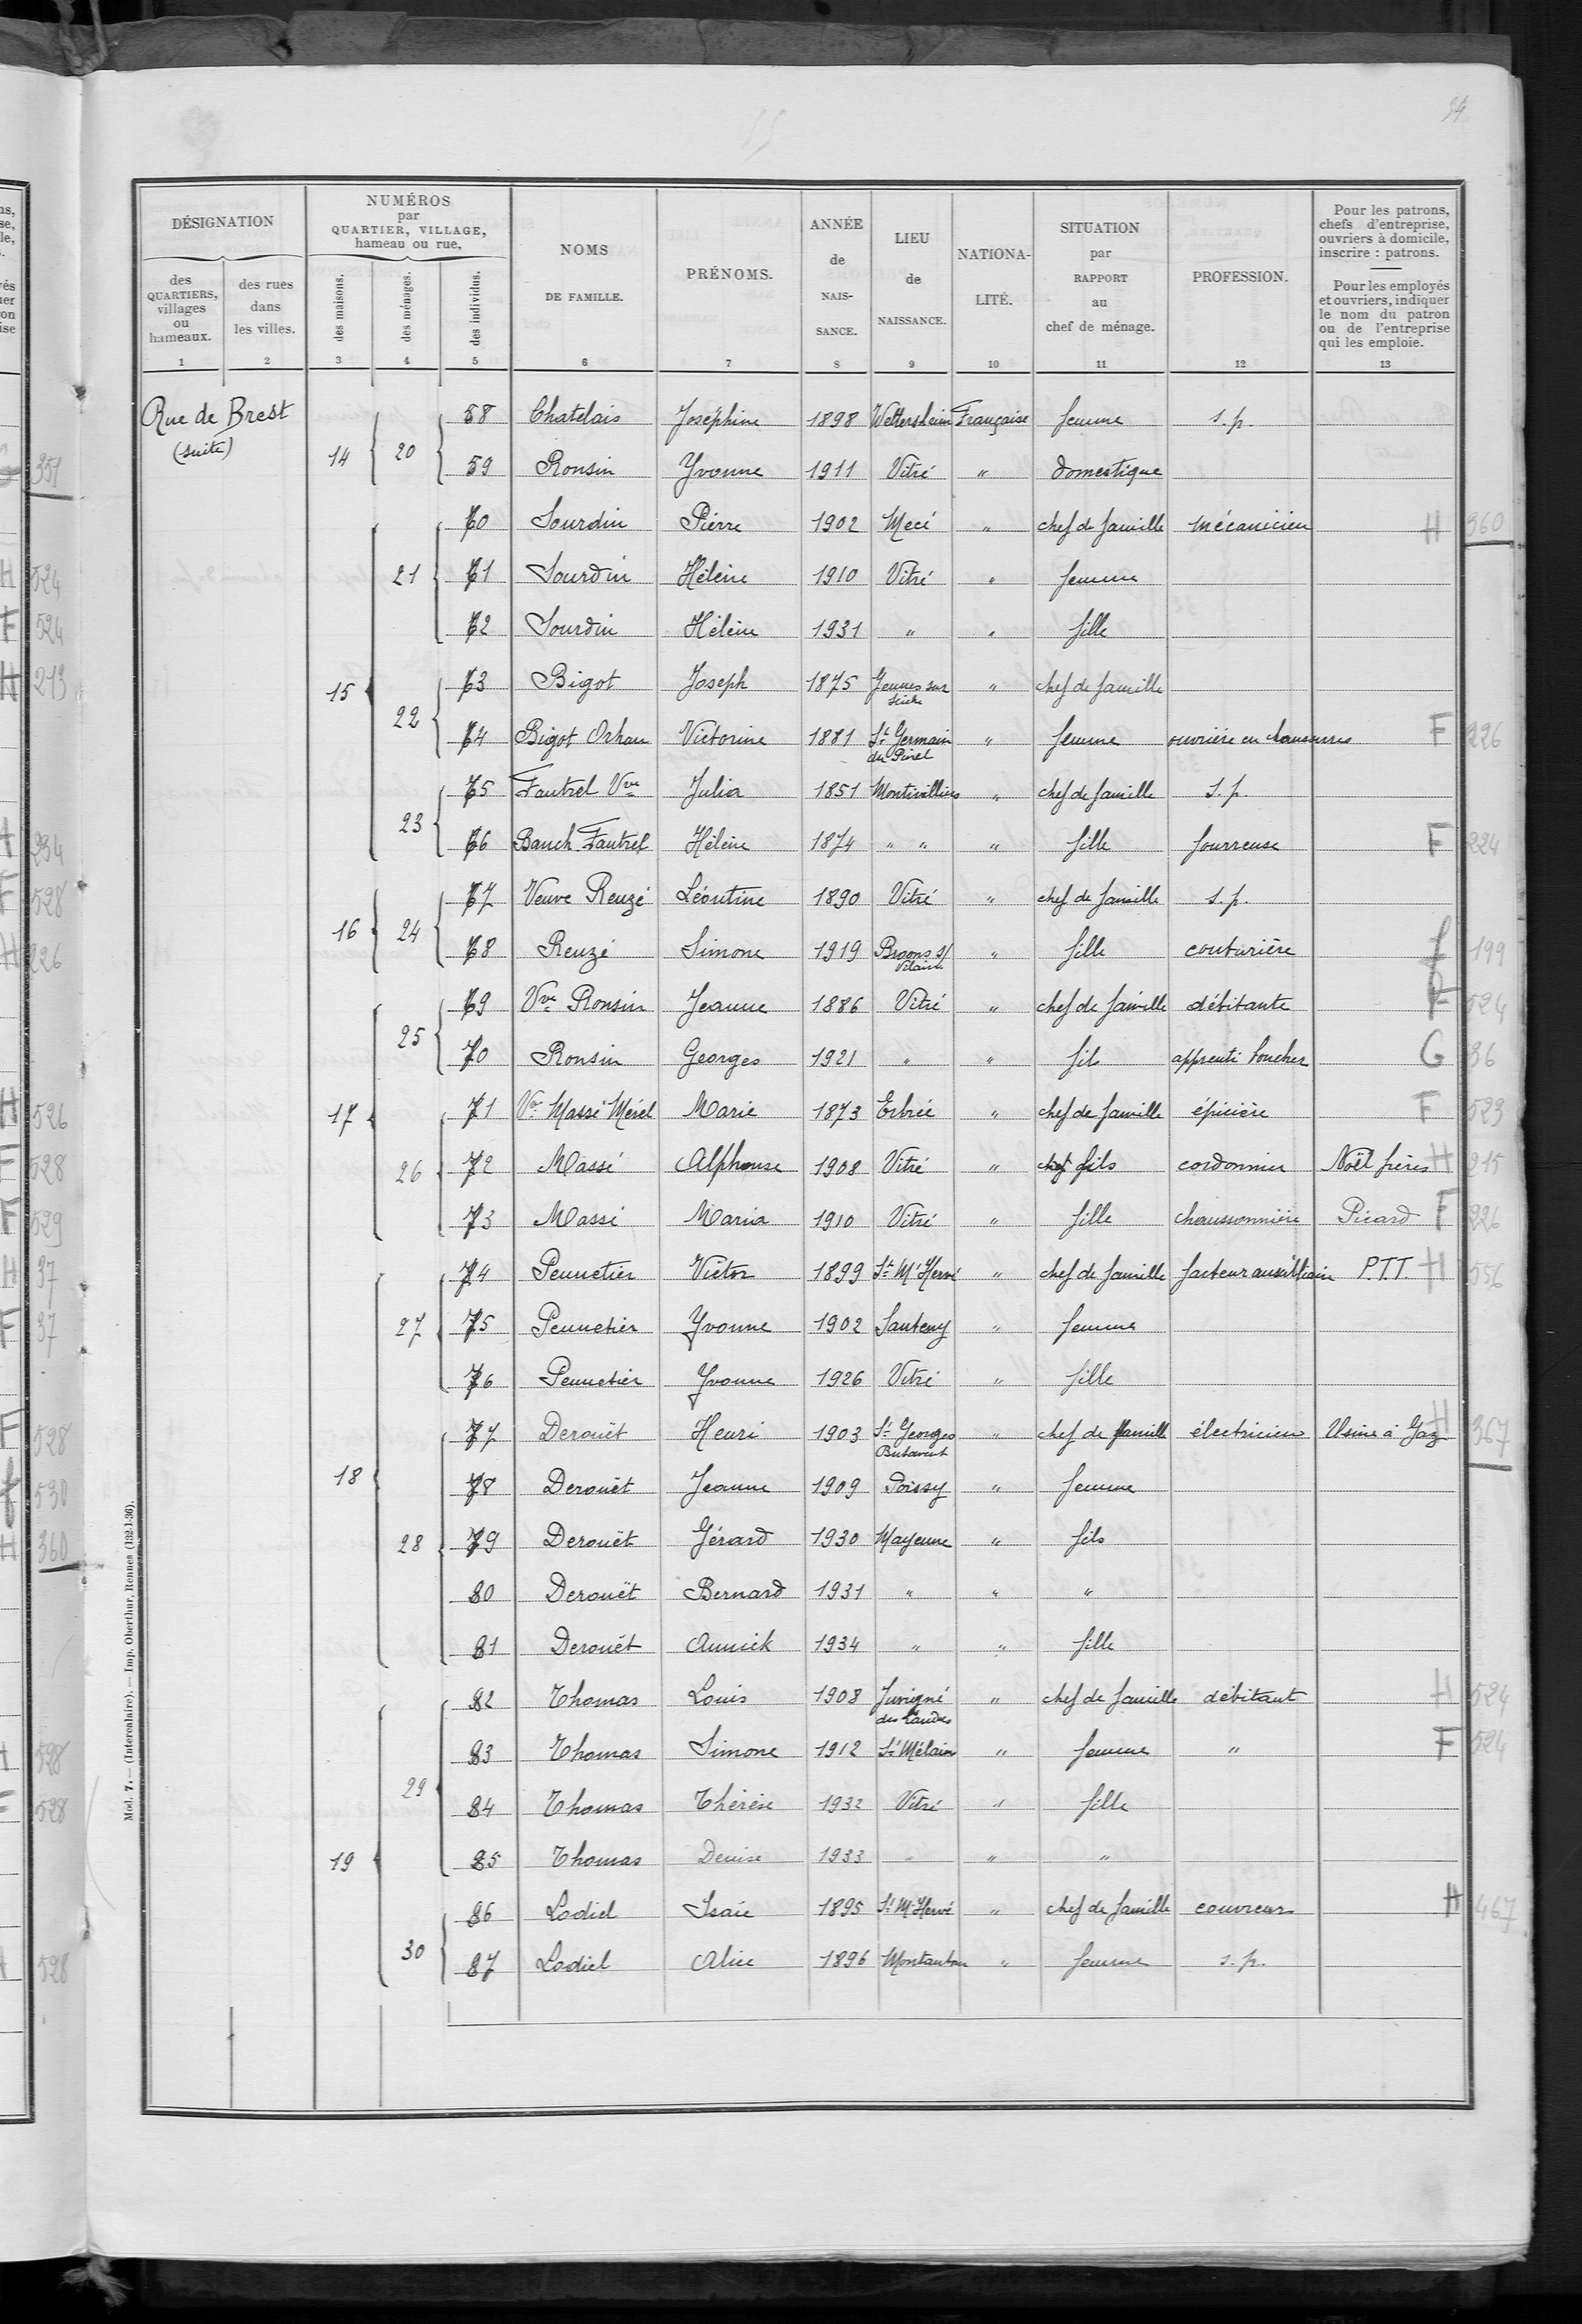 54
DÉSIGNATION
NUMÉROS
par
QUARTIER, VILLAGE,
hameau ou rue,
des
QUARTIERS,
villages
ou
hameaux.
des rues
dans
les villes.
des maisons.
des ménages.
des individus.
NOMS
DE FAMILLE.
PRÉNOMS.
ANNÉE
de
NAIS-
SANCE.
LIEU
de
NAISSANCE.
NATIONA-
LITÉ.
SITUATION
par
RAPPORT
au
chef de ménage.
PROFESSION.
Pour les patrons,
chefs d'entreprise,
ouvriers à domicile,
inscrire : patrons.
Pour les employés
et ouvriers, indiquer
le nom du patron
ou de l'entreprise
qui les emploie.
1 2 3 4 5 6 7 8 9 10 11 12 13
Rue de Brest
(suite)
58 Chatelais Joséphine 1898 Wettersheim Française femme s.p.
14 20 59 Ronsin Yvonne 1911 Vitré " domestique
60 Sourdin Pierre 1902 Mecé " chef de famille mécanicien H 360
21 61 Sourdin Hélène 1910 Vitré " femme
62 Sourdin Hélène 1931 " " fille
15 63 Bigot Joseph 1875 Gennes sur Seiche " chef de famille
22 64 Bigot Orhan Victorine 1881 St Germain du Pinel " femme ouvrière en chaussures F 226
65 Fautrel Vve Julia 1851 Montivilliers " chef de famille s.p.
23 66 Bauch Fautrel Hélène 1874 " " " fille fourreuse F 224
67 Veuve Reuzé Léontine 1890 Vitré " chef de famille s.p.
16 24 68 Reuzé Simone 1919 Broons s/ Vilaine " fille couturière f 199
69 Vve Ronsin Jeanne 1886 Vitré " chef de famille débitante F 524
25 70 Ronsin Georges 1921 " " fils apprenti boucher G 36
17 71 Ve Massé Mérel Marie 1873 Erbrée " chef de famille épicière F 523
26 72 Massé Alphonse 1908 Vitré " chef fils cordonnier Noël frères H 215
73 Massé Maria 1910 Vitré " fille chaussonnière Picard F 226
74 Pennetier Victor 1899 St M'Hervé " chef de famille facteur auxilliaire P.T.T. H 556
27 75 Pennetier Yvonne 1902 Santeny " femme
76 Pennetier Yvonne 1926 Vitré " fille
77 Derouët Henri 1903 St Georges Butavent " chef de famille électricien Usine à Gaz H 367
18 78 Derouët Jeanne 1909 Poissy " femme
28 79 Derouët Gérard 1930 Mayenne " fils
80 Derouët Bernard 1931 " " "
81 Derouët Annick 1934 " " fille
82 Thomas Louis 1908 Juvigné des Landes " chef de famille débitant H 524
83 Thomas Simone 1912 St Mélaine " femme " F 524
29 84 Thomas Thérèse 1932 Vitré " fille
19 85 Thomas Denise 1933 " " "
86 Lodiel Isaïe 1895 St M'Hervé " chef de famille couvreur H 467
30 87 Lodiel Alice 1896 Montautour " femme s.p.
Mod. 7. — (Intercalaire). — Imp. Oberthur, Rennes (132-1-36).
351
H 524
F 524
H 213
234
F 528
H 226
H 526
F 528
F 529
H 37
F 37
F 528
530
H 360
528
528
528